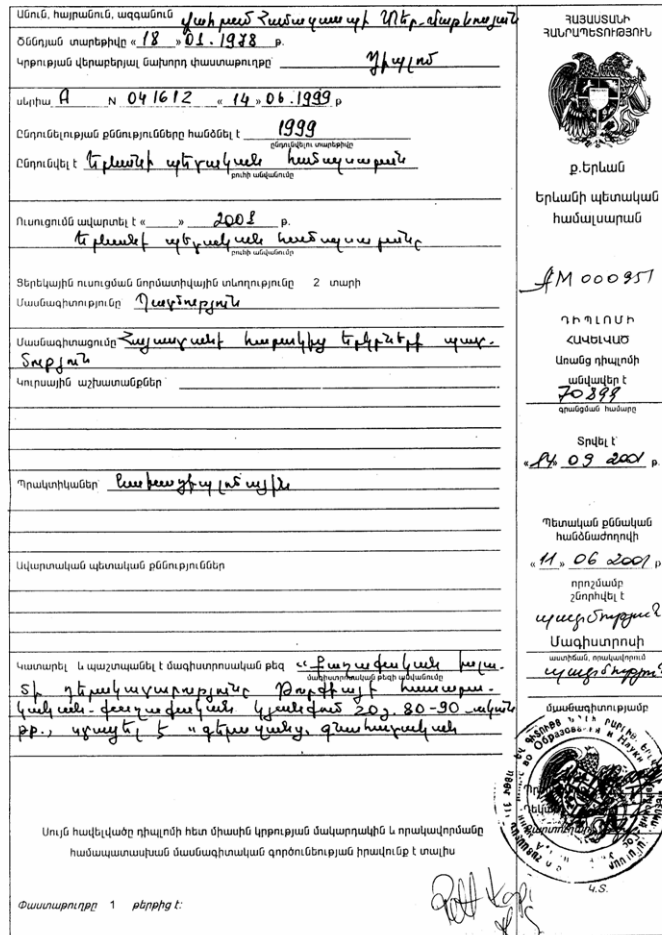 Անուն, հայրանուն, ազգանուն Վահրամ Համազասպի Տեր-Մաթևոսյան
Ծննդյան տարեթիվը « 18 » 01. 1978 թ.
Կրթության վերաբերյալ նախորդ փաստաթուղթը Դիպլոմ
սերիա A N 041612 « 14 » 06. 1999 թ
Ընդունելության քննությունները հանձնել է 1999
ընդունվելու տարեթիվը
Ընդունվել է Երևանի պետական համալսարան
բուհի անվանումը
Ուսուցումն ավարտել է « » 2001 թ.
Երևանի պետական համալսարանը
բուհի անվանումը
Ցերեկային ուսուցման նորմատիվային տևողությունը 2 տարի
Մասնագիտությունը Պատմություն
Մասնագիտացումը Հայաստանի հարակից երկրների պատ-
մություն
Կուրսային աշխատանքներ
Պրակտիկաներ նախադիպլոմային
Ավարտական պետական քննություններ
Կատարել և պաշտպանել է մագիստրոսական թեզ «Քաղաքական իսլա-
մագիստրոսական թեզի անվանումը
մի դերակատարությունը Թուրքիայի հասարա-
կական-քաղաքական կյանքում 20դ. 80-90-ական
թթ., ստացել է «գերազանց» գնահատական
Սույն հավելվածը դիպլոմի հետ միասին կրթության մակարդակին և որակավորմանը
համապատասխան մասնագիտական գործունեության իրավունք է տալիս
Փաստաթուղթը 1 թերթից է:
ՀԱՅԱՍՏԱՆԻ
ՀԱՆՐԱՊԵՏՈՒԹՅՈՒՆ
ք.Երևան
Երևանի պետական
համալսարան
AM 000951
ԴԻՊԼՈՄԻ
ՀԱՎԵԼՎԱԾ
Առանց դիպլոմի
անվավեր է
70899
գրանցման համարը
Տրվել է
« 14 » 09 2001 թ.
Պետական քննական
հանձնաժողովի
« 11 » 06 2001 թ
որոշմամբ
շնորհվել է
պատմության
Մագիստրոսի
աստիճան, որակավորում
մասնագիտությամբ
Образования и Науки
Կ.Տ.